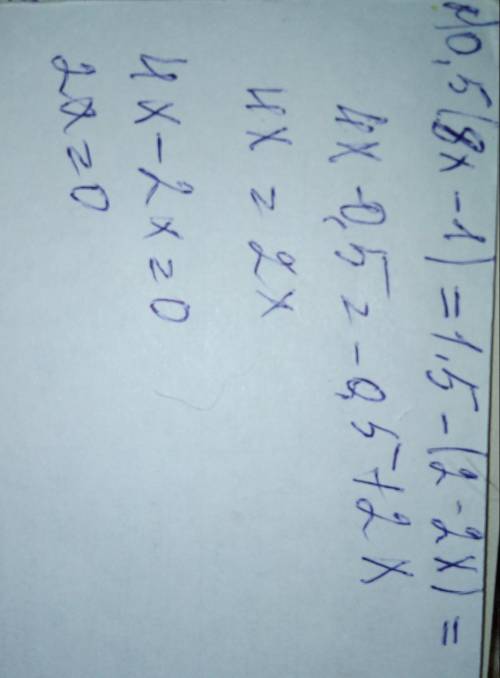 0,5(8x-1)=1.5-(2-2x)=
4x-0,5=-0,5+2x
4x=2x
4x-2x=0
2x=0